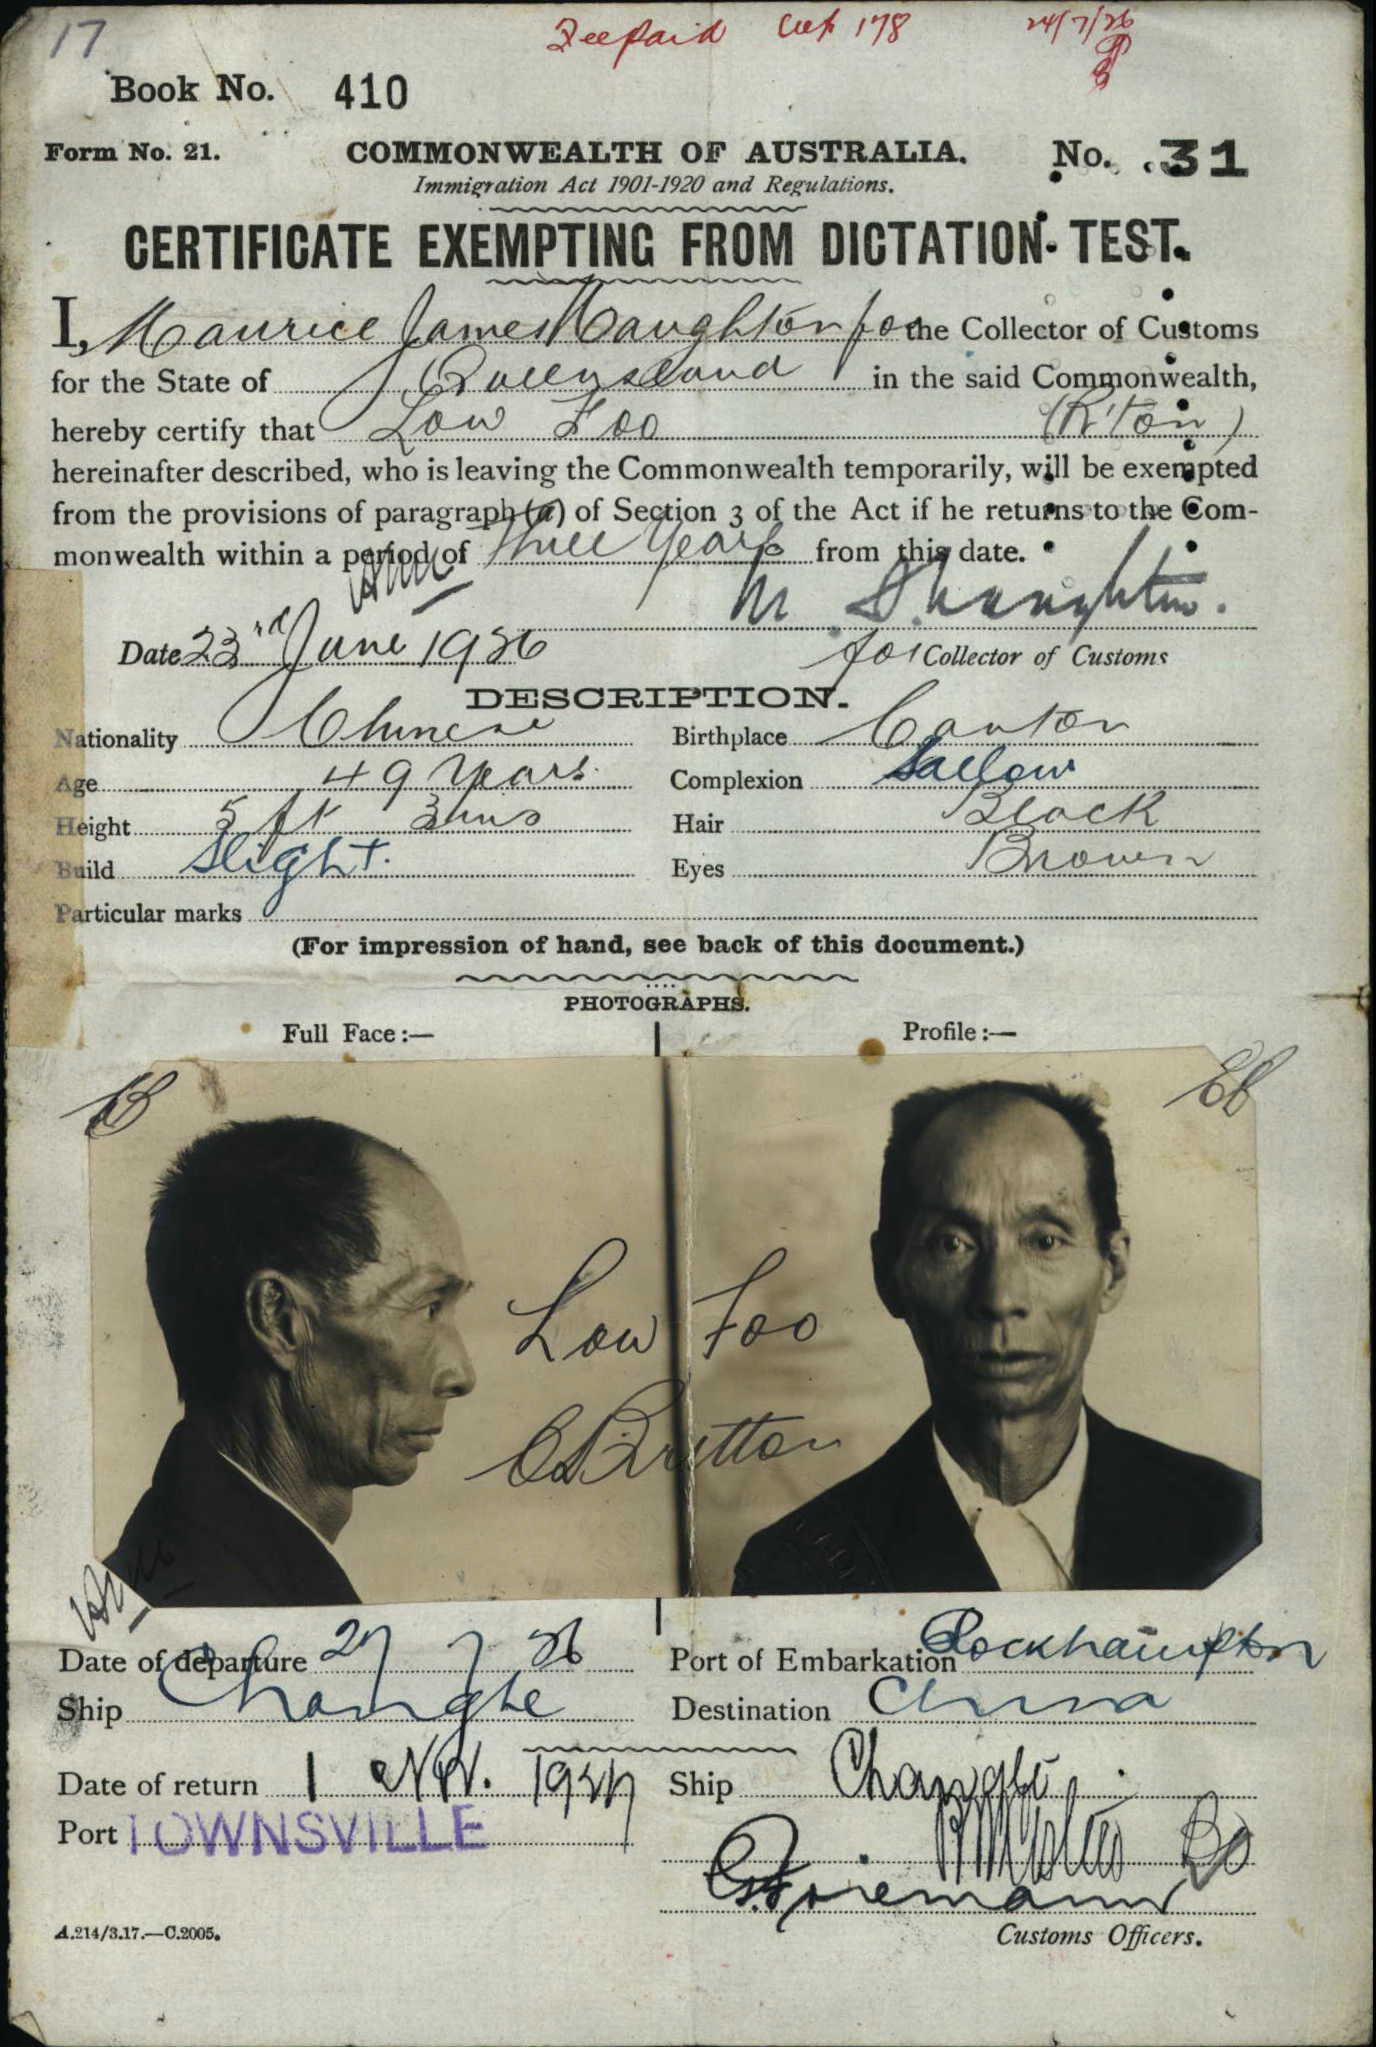 17
Fee paid 178 24/7/26
Book No. 410
Form No. 21. COMMONWEALTH OF AUSTRALIA. No. 31
Immigration Act 1901-1920 and Regulations.
CERTIFICATE EXEMPTING FROM DICTATION TEST.
I, Maurice James Naughton for the Collector of Customs
for the State of Queensland in the said Commonwealth,
hereby certify that Low Foo (R'ton)
hereinafter described, who is leaving the Commonwealth temporarily, will be exempted
from the provisions of paragraph (a) of Section 3 of the Act if he returns to the Com-
monwealth within a period of Three Years from this date.
Date 23rd June 1926 for Collector of Customs
DESCRIPTION.
Nationality Chinese Birthplace Canton
Age 49 Years. Complexion Sallow
Height 5 ft 3 ins Hair Black
Build Slight. Eyes Brown
Particular marks
(For impression of hand, see back of this document.)
PHOTOGRAPHS.
Full Face:— Profile:—
Low Foo
Britton
Date of departure 27 7 26 Port of Embarkation Rockhampton
Ship Changte Destination China
Date of return 1 Nov. 1927 Ship Changte
Port TOWNSVILLE
A.214/3.17.—C.2005. Customs Officers.